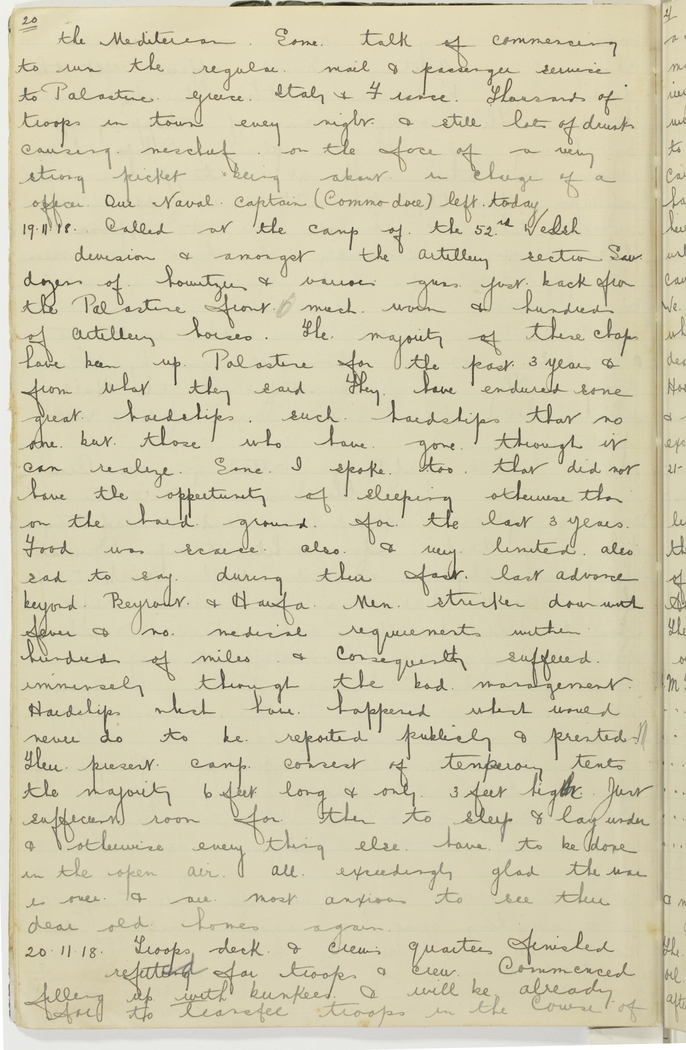 20
the Mediterean. Some talk of commencing
to run the regular mail & passenger service
to Palastine. Greece. Italy & France. Thousands of
troops in town every night & still lots of drunks
causing mischief. on the face of a very
strong picket being about in charge of a
officer. Our Naval Captain (Commodore) left today
19.11.18. Called at the camp of the 52nd Welsh
division & amongst the Artillery section Saw
dozens of howitzers & various guns just back from
the Palastine front. much worn & hundreds
of Artillery horses. The majority of these chaps
have been up Palastine for the past 3 years &
from what they said They have endured some
great hardships. such hardships that no
one but those who have gone through it
can realize. Some I spoke too that did not
have the oppertunity of sleeping otherwise than
on the hard ground for the last 3 years.
Food was scarce also & very limited. also
sad to say during their fast last advance
beyond Beyrout & Haifa. Men stricken down with
fever & no medical requirements within
hundreds of miles & consequently suffered
imminsely through the bad management.
Hardships which have happened which would
never do to be reported publicly & printed.
Their present camp consist of temporary tents
the majority 6 feet long & only 3 feet high. Just
suffecient room for then to sleep & lay under
& otherwise every thing else have to be done
in the open air. All exceedingly glad the war
is over & are most anxious to see their
dear old homes again.
20.11.18. Troops deck & crews quarters finished
refitted for troops & crew. Commenced
filling up with bunkers & will be already
for to transfer troops in the course of